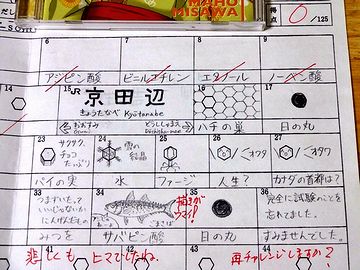 MAHO
MISAWA
得点
0
/125
6
7
8
9
アジピン酸
ビニルエチレン
エタノール
ノーベン酸
14
15
16
17
JR
京田辺
きょうたなべ Kyōtanabe
おおすみ
どうししゃまえ
ハチの巣
日の丸
23
24
25
26
27
サクサク、
チョコ
たっぷり
雪の
結晶
オワタ
オワタ
パイの実
水
ファージ
人生?
カナダの首都は?
33
34
35
36
つまずいたって
いいじゃないか
にんげんだもの
描きが
ウマイ!
完全に試験のことを
忘れてました。
みつを
サバピン酸
日の丸
すみませんでした。
44
悲しくも
ヒマでしたね。
再チャレンジしますか?